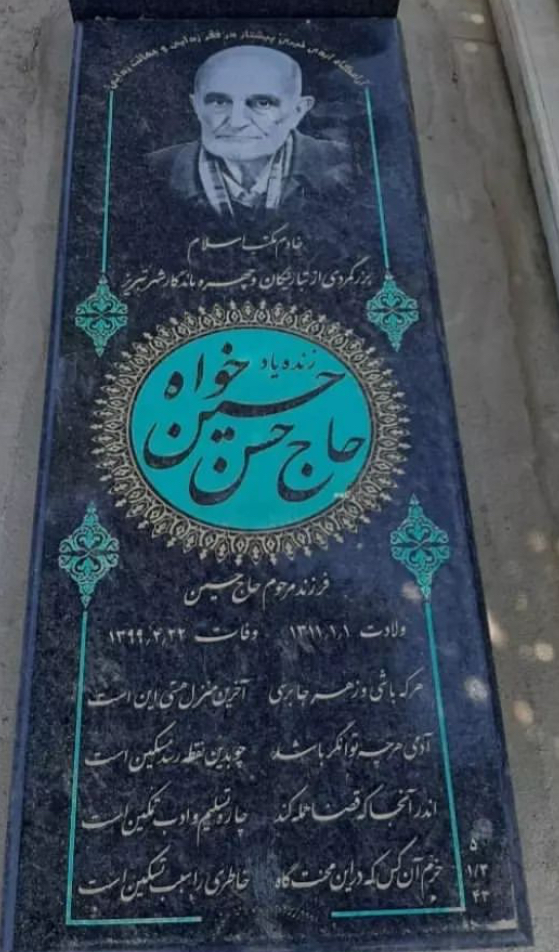 آرامگاه ابدی خیری پیشتاز در فقر زدایی و جهالت زدایی
خادم مکتب اسلام
بزرگمردی از تبار نیکان و چهره ماندگار شهر تبریز
زنده یاد
حاج حسن حسین خواه
فرزند مرحوم حاج حسین
ولادت ۱۳۱۱,۱,۱ وفات ۱۳۹۹,۴,۲۲
هر که باشی و ز هر جا برسی آخرین منزل هستی این است
آدمی هر چه توانگر باشد چو بدین نقطه رسد مسکین است
اندر آنجا که قضا حمله کند چاره تسلیم و ادب تمکین است
خرم آن کس که در این محنت گاه خاطری را سبب تسکین است
۵
۱/۳
۴۳